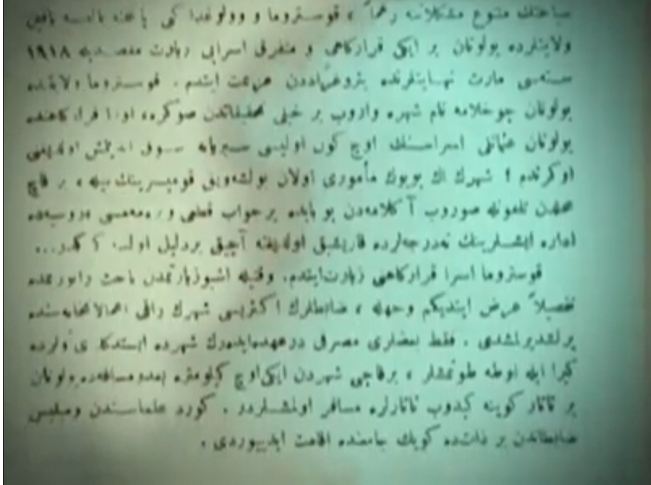 سیاحتك متنوع مشکلاتنه رغماً ، قوستروما و وولوغدا کبی
ولایتلرده بولونان بر ایکی قرارکاهی و متفرق اسرایی زیارت مقصدیله ۱۹۱۸
سنه‌سی مارت نهایتلرنده پتروغراددن عزیمت ایتدم . قوستروما ولایتنده
بولونان چوخلامه نام شهره واروب بر خیلی تحقیقاتدن صوکره، اورا قرارکاهنده
بولونان عثمانلی اسراسنك اوچ کون اولیسی سوق ایدیلمش اولدیغنی
اوکرندم ! شهرك اك بویوك مأموری اولان بولشه‌ویق قومیسرینك بیله ، بر قاچ
محلدن تلفونله صوروب آکلامه‌دن بو بابده بر جواب قطعی ویره‌مه‌مسی روسیه‌ده
اداره ایشلرینك نه‌درجه‌لرده قاریشیق اولدیغنه آچیق بر دلیل اولسه کرکدر...
قوستروما اسرا قرارکاهنی زیارت ایتدم. وقتیله اشبو زیارتمدن باحث راپورمده
تفصیلاً عرض ایتدیکم وجهله ، ضابطلرك اکثریسی شهرك
یرلشدیرلمشدی . فقط بعضلری مصرفی درعهده ایده‌رك شهرده ایستدکلری اولرده
کیرا ایله اوطه طوتمشلر ، برقاچی شهردن ایکی اوچ کیلومتره بعد و مسافه‌ده بولونان
بر تاتار کوینه کیدوب تاتارلره مسافر اولمشلردر . کورد علماسندن وملیس
ضابطاندن بر ذات‌ده کویك جامعنده اقامت ایدییوردی .